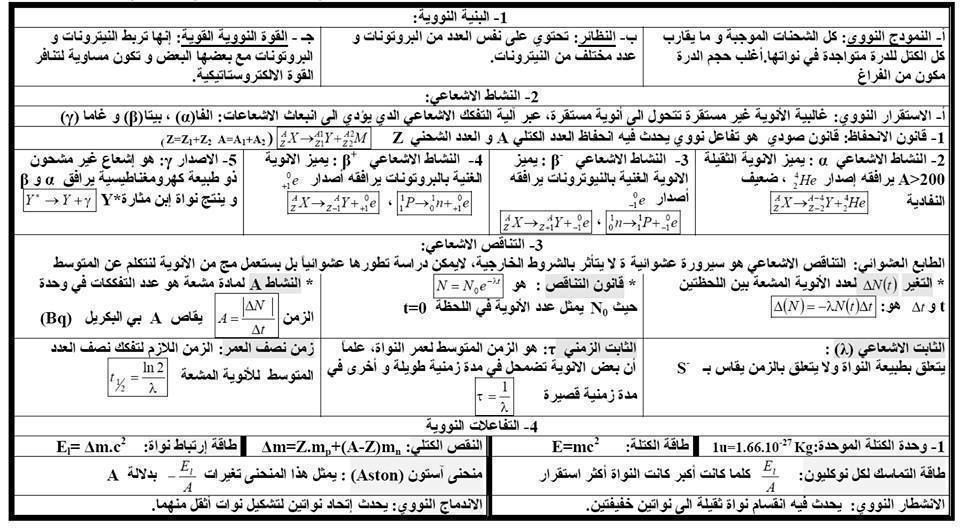 1- البنية النووية:
أ- النموذج النووي: كل الشحنات الموجبة و ما يقارب
كل الكتل للدرة متواجدة في نواتها.أغلب حجم الدرة
مكون من الفراغ
ب- النظائر: تحتوي على نفس العدد من البروتونات و
عدد مختلف من النيترونات.
جـ - القوة النووية القوية: إنها تربط النيترونات و
البروتونات مع بعضها البعض و تكون مساوية لتنافر
القوة الالكتروستاتيكية.
2- النشاط الاشعاعي:
أ- الاستقرار النووي: غالبية الأنوية غير مستقرة تتحول الى أنوية مستقرة، عبر آلية التفكك الاشعاعي الدي يؤدي الى انبعاث الاشعاعات: الفا(α) ، بيتا(β) و غاما (γ)
1- قانون الانحفاظ: قانون صودي هو تفاعل نووي يحدث فيه انحفاظ العدد الكتلي A و العدد الشحني Z ^A_Z X → ^{A1}_{Z1} Y + ^{A2}_{Z2} M (Z=Z₁+Z₂ A=A₁+A₂)
2- النشاط الاشعاعي α : يميز الانوية الثقيلة
A>200 يرافقه إصدار ^4_2 He ، ضعيف
النفادية ^A_Z X → ^{A-4}_{Z-2} Y + ^4_2 He
3- النشاط الاشعاعي β⁻ : يميز
الانوية الغنية بالنيوترونات يرافقه
أصدار ^0_{-1} e
^1_0 n → ^1_1 P + ^0_{-1} e ، ^A_Z X → ^A_{Z+1} Y + ^0_{-1} e
4- النشاط الاشعاعي β⁺ : يميز الانوية
الغنية بالبروتونات يرافقه أصدار ^0_{+1} e
^1_1 P → ^1_0 n + ^0_{+1} e ، ^A_Z X → ^A_{Z-1} Y + ^0_{+1} e
5- الاصدار γ: هو إشعاع غير مشحون
ذو طبيعة كهرومغناطيسية يرافق α و β
و ينتج نواة إبن مثارة Y* Y* → Y + γ
3- التناقص الاشعاعي:
الطابع العشوائي: التناقص الاشعاعي هو سيرورة عشوائية ة لا يتأثر بالشروط الخارجية، لايمكن دراسة تطورها عشوائياً بل بستعمل مج من الأنوية لنتكلم عن المتوسط
* التغير ΔN(t) لعدد الأنوية المشعة بين اللحظتين
t و Δt هو: Δ(N)=−λN(t)Δt
* قانون التناقص : هو N = N₀e^{-λt}
حيث N₀ يمثل عدد الأنوية في اللحظة t=0
* النشاط A لمادة مشعة هو عدد التفككات في وحدة
الزمن A = |ΔN/Δt| يقاص A بي البكريل (Bq)
الثابت الاشعاعي (λ) :
يتعلق بطبيعة النواة ولا يتعلق بالزمن يقاس بـ S⁻
الثابت الزمني τ: هو الزمن المتوسط لعمر النواة، علماً
أن بعض الانوية تضمحل في مدة زمنية طويلة و أخرى في
مدة زمنية قصيرة τ = 1/λ
زمن نصف العمر: الزمن اللازم لتفكك نصف العدد
المتوسط للأنوية المشعة t_{1/2} = ln2/λ
4- التفاعلات النووية
1- وحدة الكتلة الموحدة: 1u=1.66.10⁻²⁷ Kg
طاقة الكتلة: E=mc²
النقص الكتلي: Δm=Z.mp+(A-Z)mn
طاقة إرتباط نواة: El= Δm.c²
طاقة التماسك لكل نوكليون: El/A كلما كانت أكبر كانت النواة أكثر استقرار
منحنى آستون (Aston) : يمثل هذا المنحنى تغيرات −El/A بدلالة A
الانشطار النووي: يحدث فيه انقسام نواة ثقيلة الى نواتين خفيفتين.
الاندماج النووي: يحدث إتحاد نواتين لتشكيل نوات أثقل منهما.